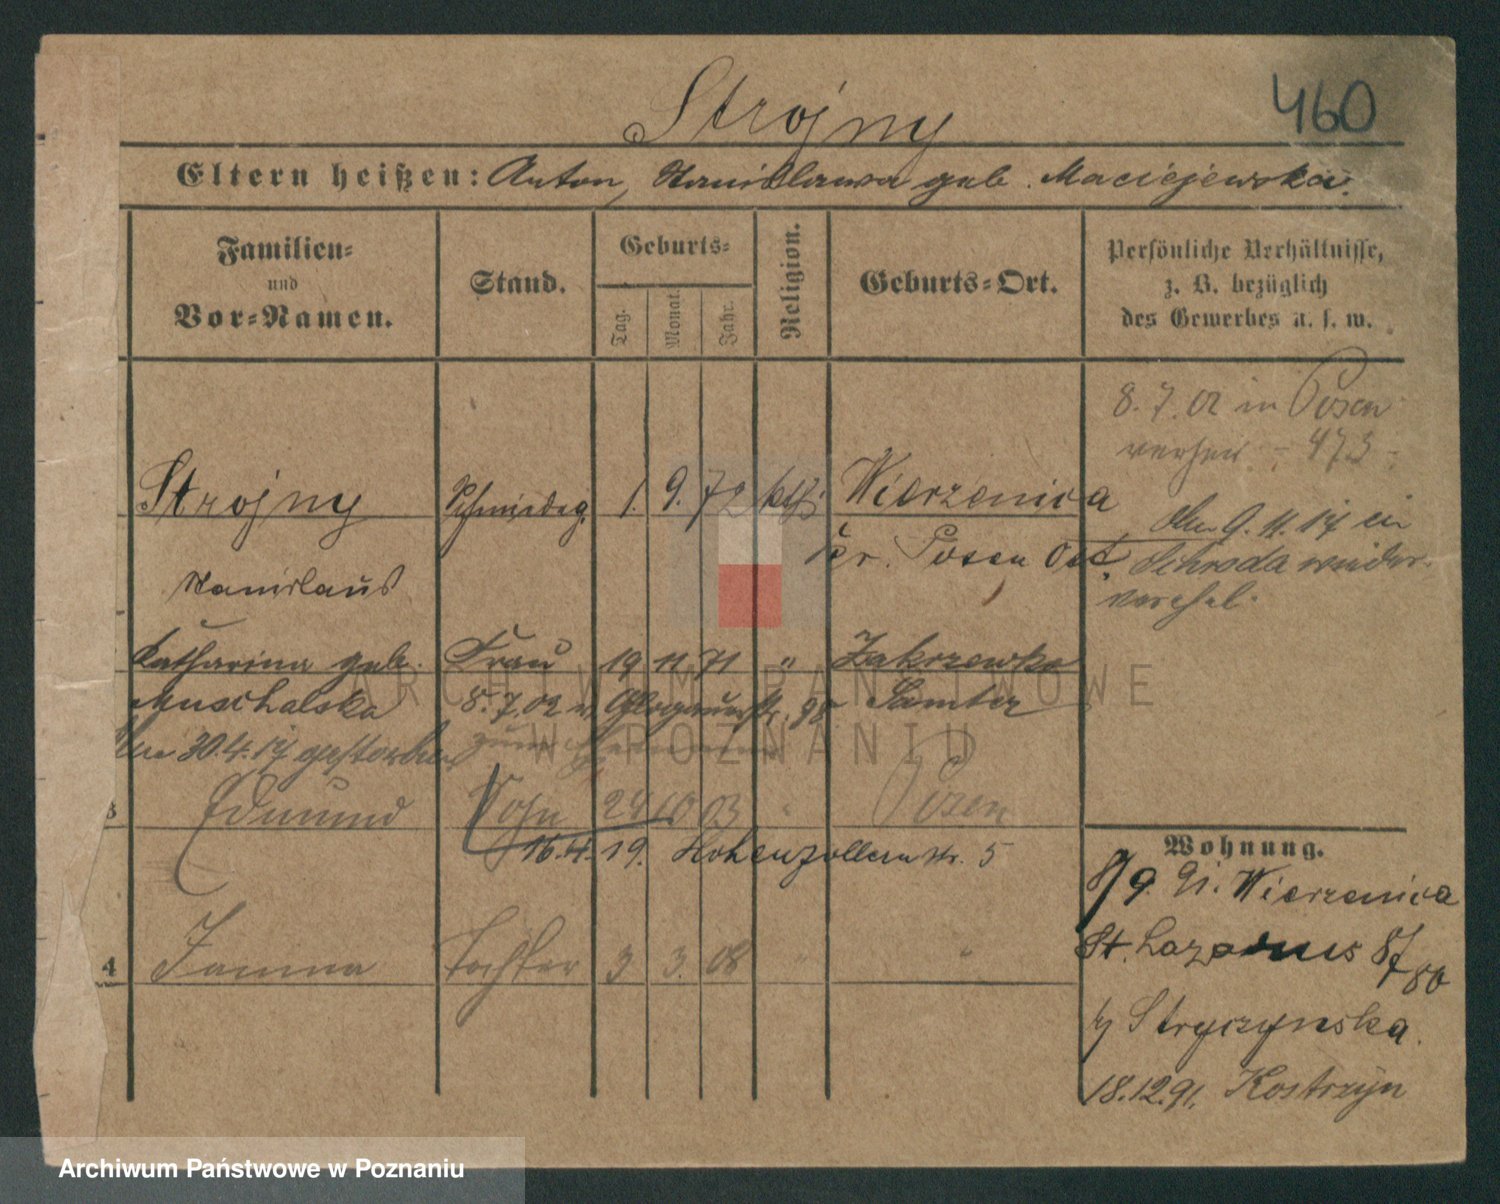 460
Strojny
Eltern heißen: Anton, Stanislawa geb. Maciejewska.
Familien-
und
Vor-Namen.
Stand.
Geburts-
Tag.
Monat.
Jahr.
Religion.
Geburts-Ort.
Persönliche Verhältnisse,
z. B. bezüglich
des Gewerbes u. s. w.
8. 7. 02 in Posen
473
Strojny
1. 9. 72 kth
Wierzenica
Kr. Posen Ost.
9. 11. 17 in
Schroda wieder
Stanislaus
Katharina geb. Frau 19 11 71 " Zakrzewko
Muschalska 8. 7. 02 Glogauerstr. 98 Samter
30. 4. 17 gestorben
3 Edmund Sohn 24 10 03 " Posen
16. 4. 19. Hohenzollernstr. 5
4 Tochter 3 3. 08 " "
Wohnung.
8/9. 91. Wierzenica
St. Lazarus
Stryczynska.
18.12.91. Kostrzyn
ARCHIWUM PAŃSTWOWE
W POZNANIU
Archiwum Państwowe w Poznaniu